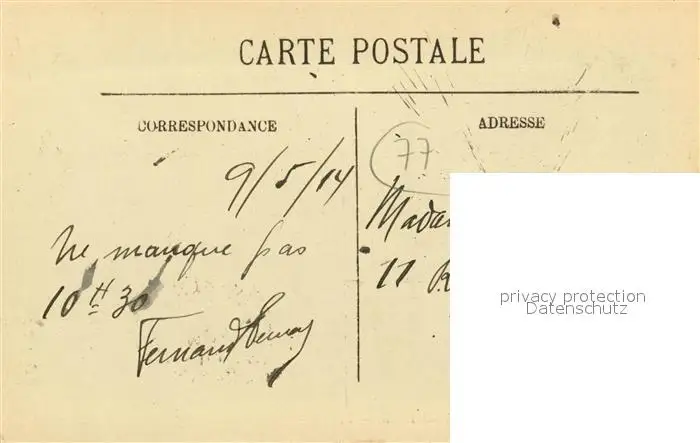 CARTE POSTALE
CORRESPONDANCE
ADRESSE
77
9/5/14
Ne manque pas
10 H 30
Fernand
Madam
11 R
privacy protection
Datenschutz